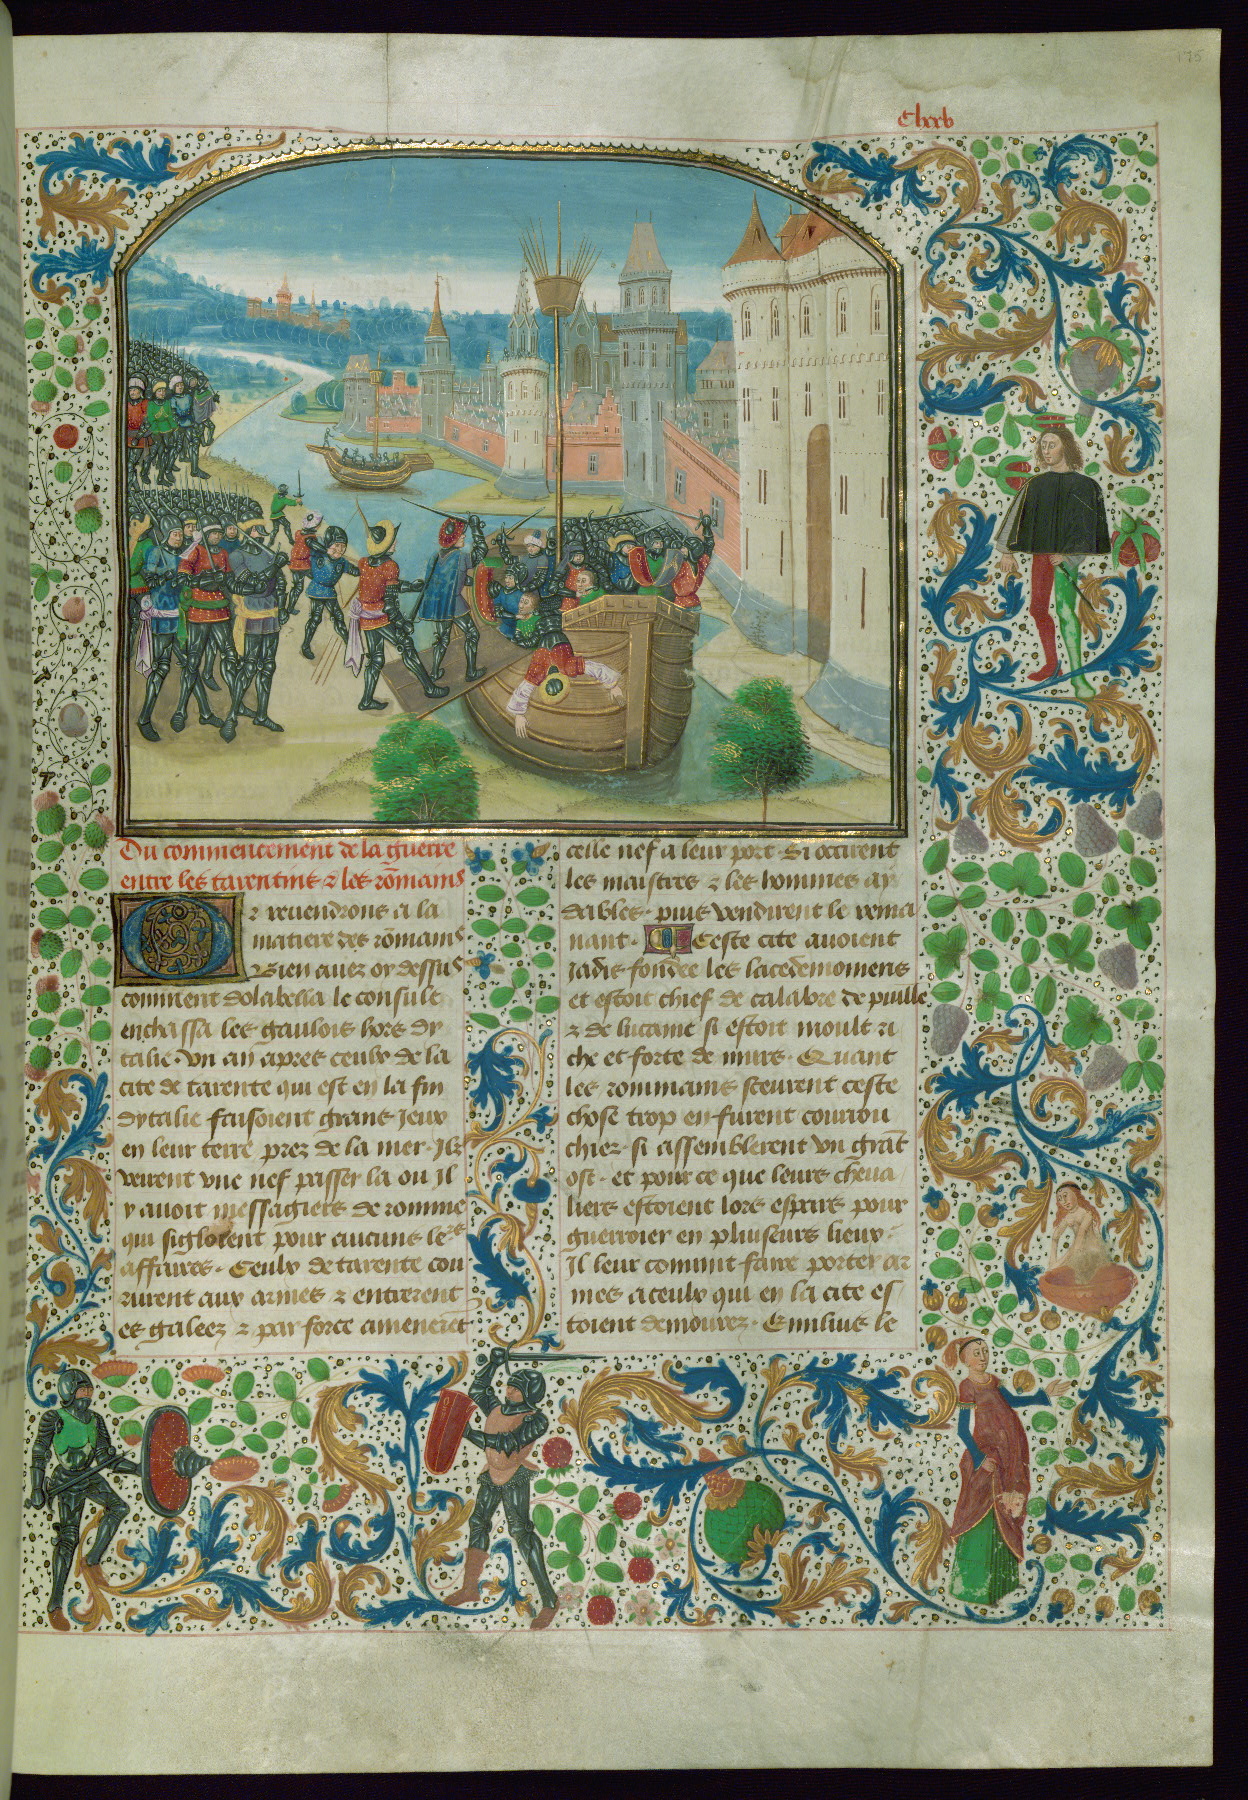 175
clxxb
Du commencement de la guerre
entre les tarentins ⁊ les rõmains
Or reuendrons a la
matiere des rõmains
Bien auez oy dessus
comment dolabella le consule
enchassa les gaulois hors dy
talie. Vn an apres ceulx de la
cite de tarente qui est en la fin
dytalie faisoient grans Jeux
en leur terre prez de la mer. Ilz
veirent vne nef passer la ou Jl
y auoit messagiers de romme
qui sigloient pour aucuns le^rs
affaires. Ceulx de tarente cou
rurent aux armes ⁊ entrerent
es galeez ⁊ par force amenerẽt
celle nef a leur port. Si occirent
les maistres ⁊ les hommes ay
dables. puis vendirent le rema
nant. Ceste cite auoient
Jadis fondee les lacedemoniens
et estoit chief de calabre de puille
⁊ de lucanie si estoit moult ri
che et forte de murs. Quant
les rommains sceurent ceste
chose trop en furent courou
chiez. si assemblerent vn grãt
ost. et pour ce que leurs cheua
liers estoient lors espars pour
guerroier en pluiseurs lieux.
Jl leur conuint faire porter ar
mes a ceulx qui en la cite es
toient demourez. Emilius le